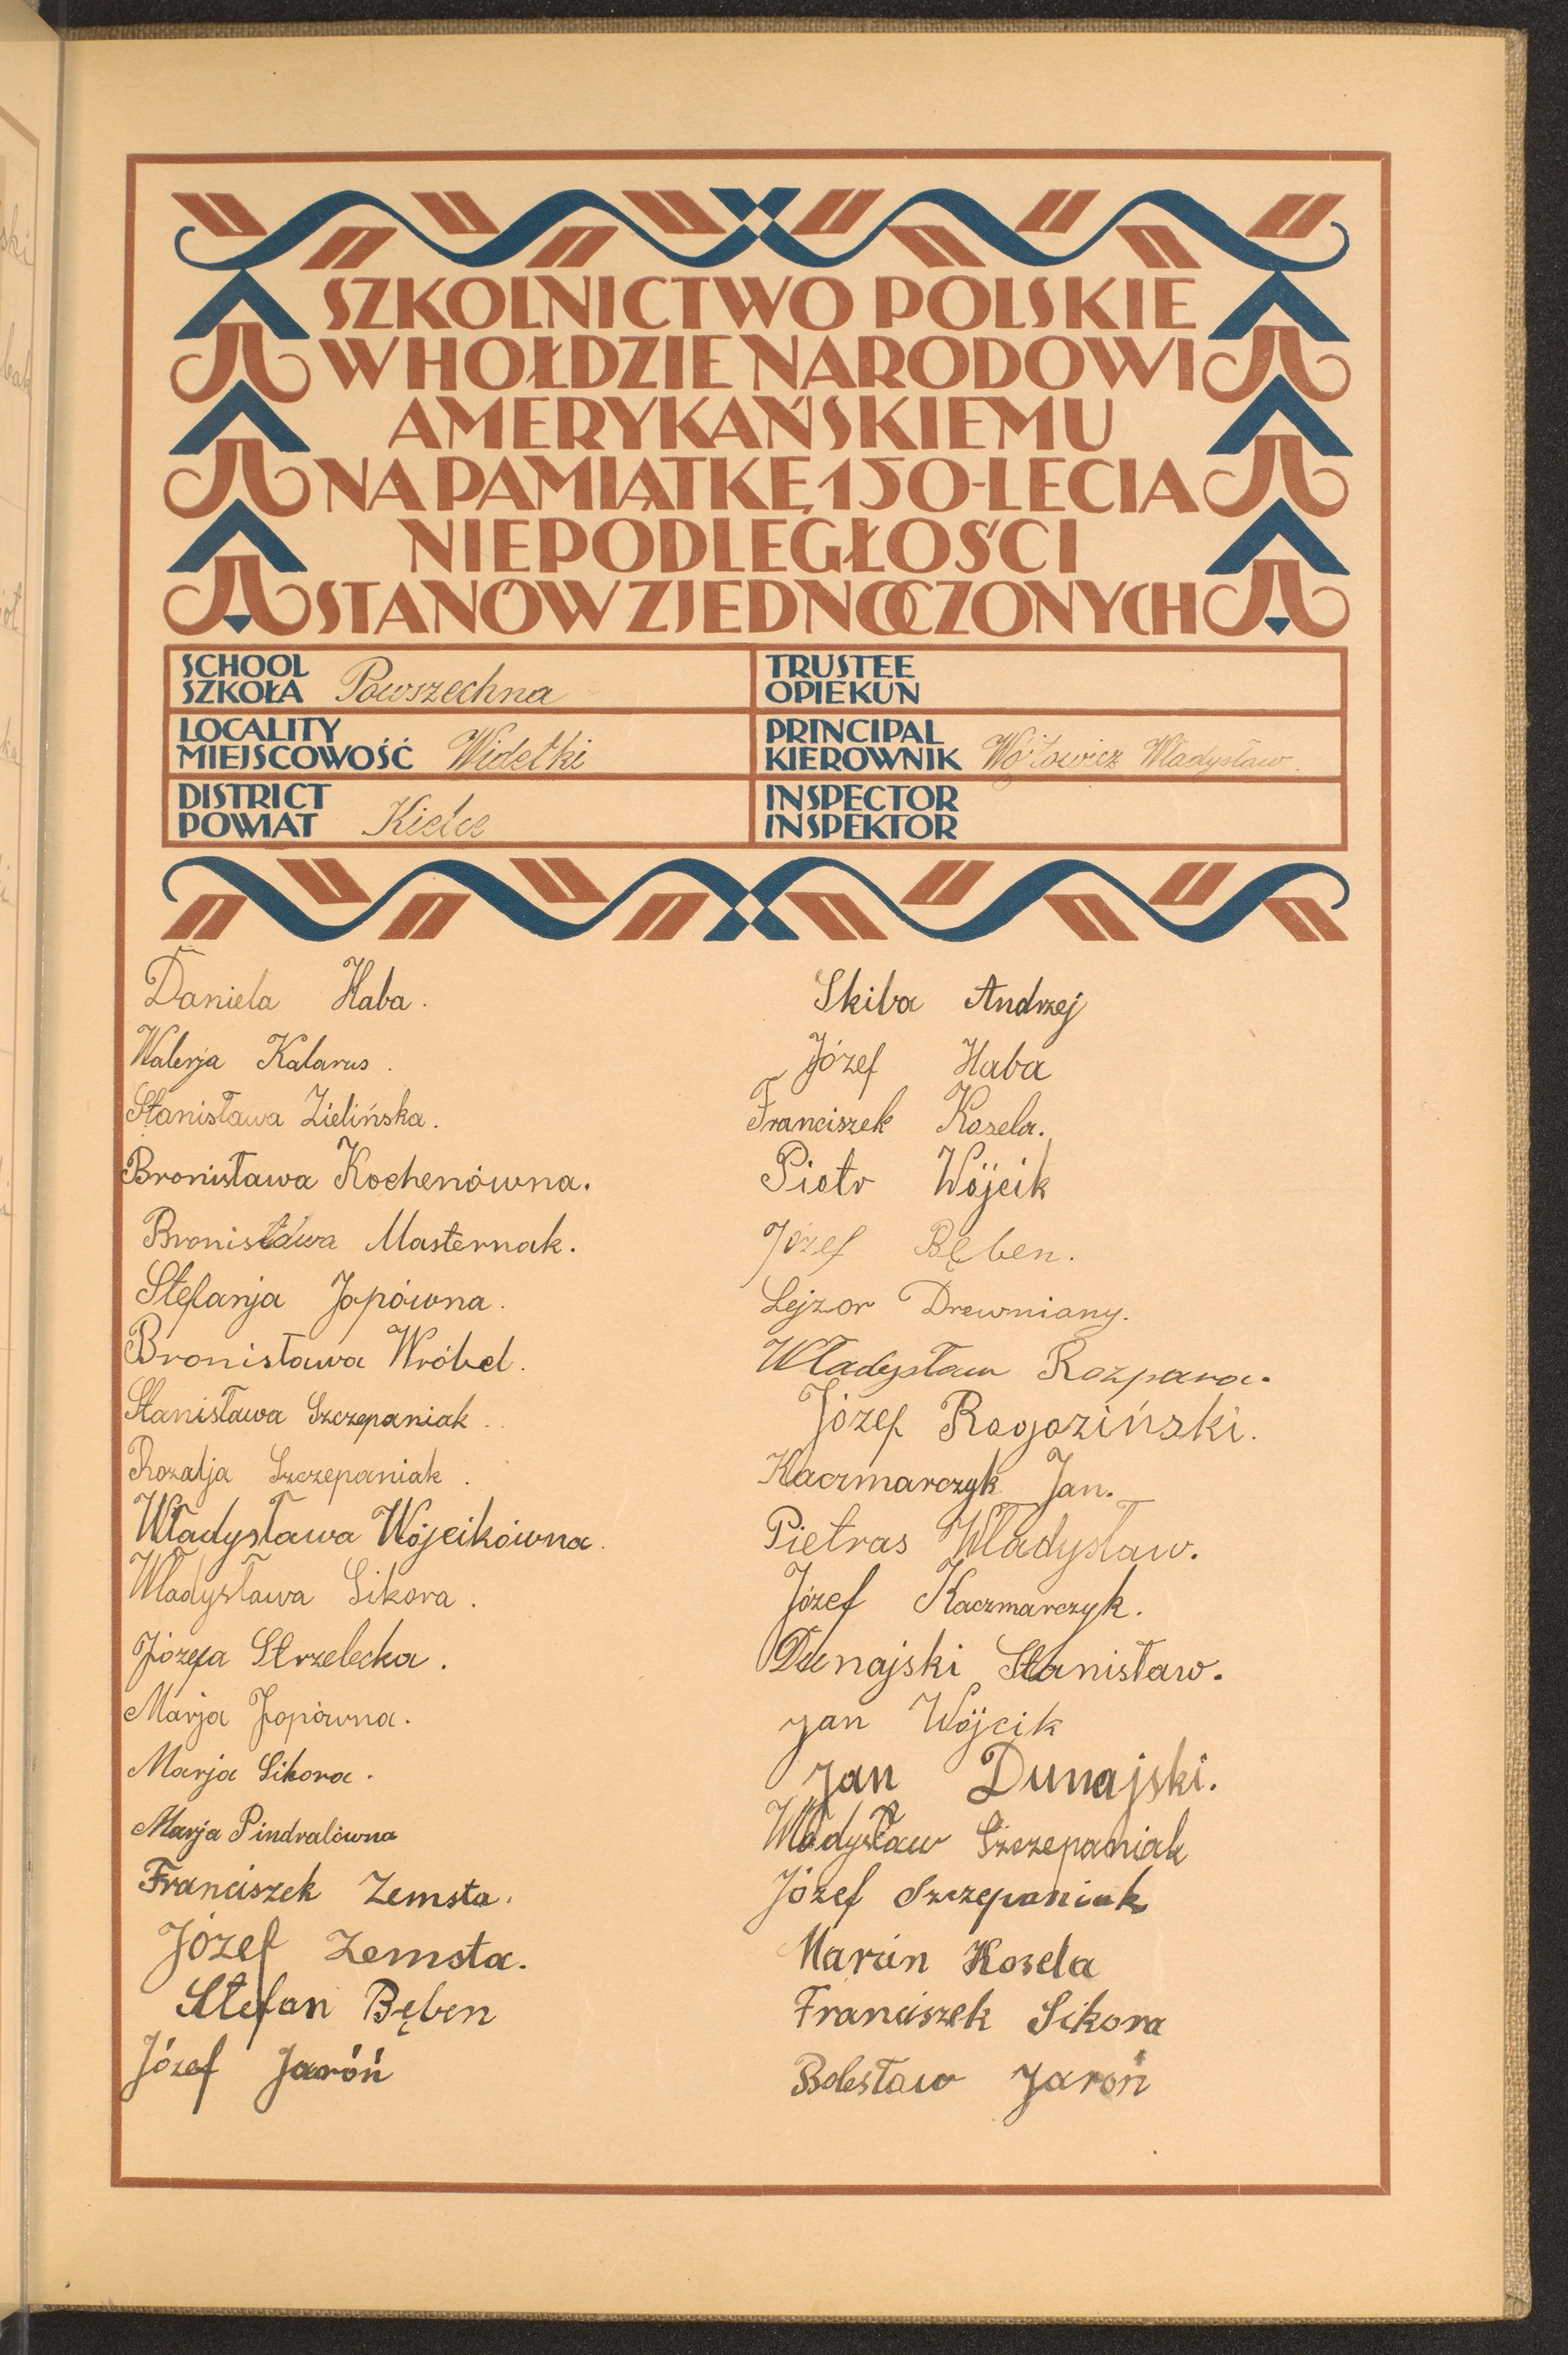 SZKOLNICTWO POLSKIE
W HOŁDZIE NARODOWI
AMERYKAŃSKIEMU
NA PAMIĄTKĘ 150-LECIA
NIEPODLEGŁOŚCI
STANÓW ZJEDNOCZONYCH
SCHOOL
SZKOŁA Powszechna
LOCALITY
MIEJSCOWOŚĆ Widełki
DISTRICT
POWIAT Kielce
TRUSTEE
OPIEKUN
PRINCIPAL
KIEROWNIK Wójtowicz Władysław
INSPECTOR
INSPEKTOR
Daniela Haba.
Walerja Kalarus.
Stanisława Zielińska.
Bronisława Kochenówna.
Bronisława Masternak.
Stefanja Jopówna.
Bronisława Wróbel.
Stanisława Szczepaniak.
Rozalja Szczepaniak.
Władysława Wójcikówna.
Władysława Sikora.
Józefa Strzelecka.
Marja Jopówna.
Marja Sikora.
Marja Pindralówna
Franciszek Zemsta.
Józef Zemsta.
Stefan Bęben
Józef Jaróń
Skiba Andrzej
Józef Haba
Franciszek Kosela.
Piotr Wójcik
Józef Bęben.
Lejzor Drewniany.
Władysław Rozpara.
Józef Rogoziński.
Kaczmarczyk Jan.
Pietras Władysław.
Józef Kaczmarczyk.
Dunajski Stanisław.
Jan Wójcik
Jan Dunajski.
Władysław Szczepaniak
Józef Szczepaniak
Marcin Kosela
Franciszek Sikora
Bolesław Jaroń